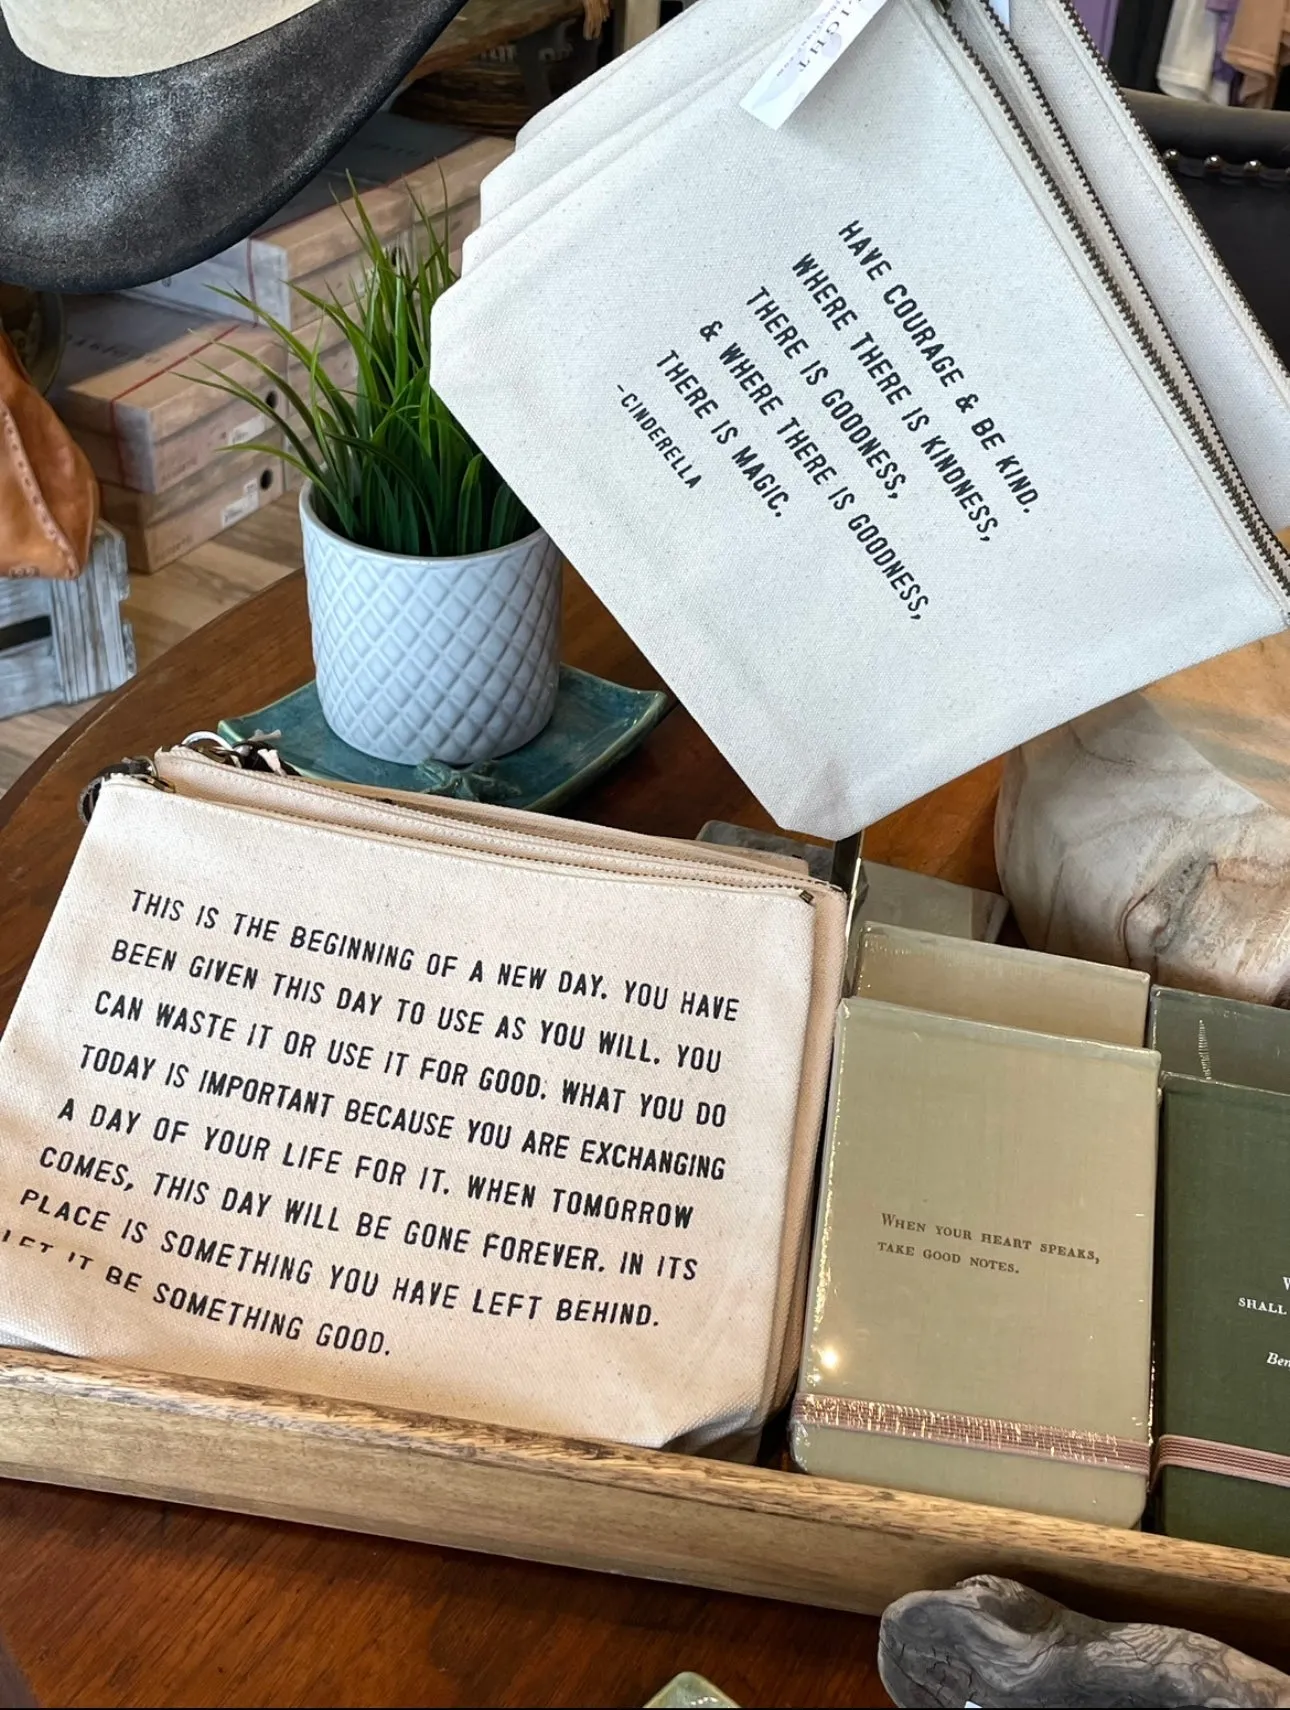 HAVE COURAGE & BE KIND.
WHERE THERE IS KINDNESS,
THERE IS GOODNESS,
& WHERE THERE IS GOODNESS,
THERE IS MAGIC.
-CINDERELLA
THIS IS THE BEGINNING OF A NEW DAY. YOU HAVE
BEEN GIVEN THIS DAY TO USE AS YOU WILL. YOU
CAN WASTE IT OR USE IT FOR GOOD. WHAT YOU DO
TODAY IS IMPORTANT BECAUSE YOU ARE EXCHANGING
A DAY OF YOUR LIFE FOR IT. WHEN TOMORROW
COMES, THIS DAY WILL BE GONE FOREVER. IN ITS
PLACE IS SOMETHING YOU HAVE LEFT BEHIND.
LET IT BE SOMETHING GOOD.
WHEN YOUR HEART SPEAKS,
TAKE GOOD NOTES.
SHALL
Ben